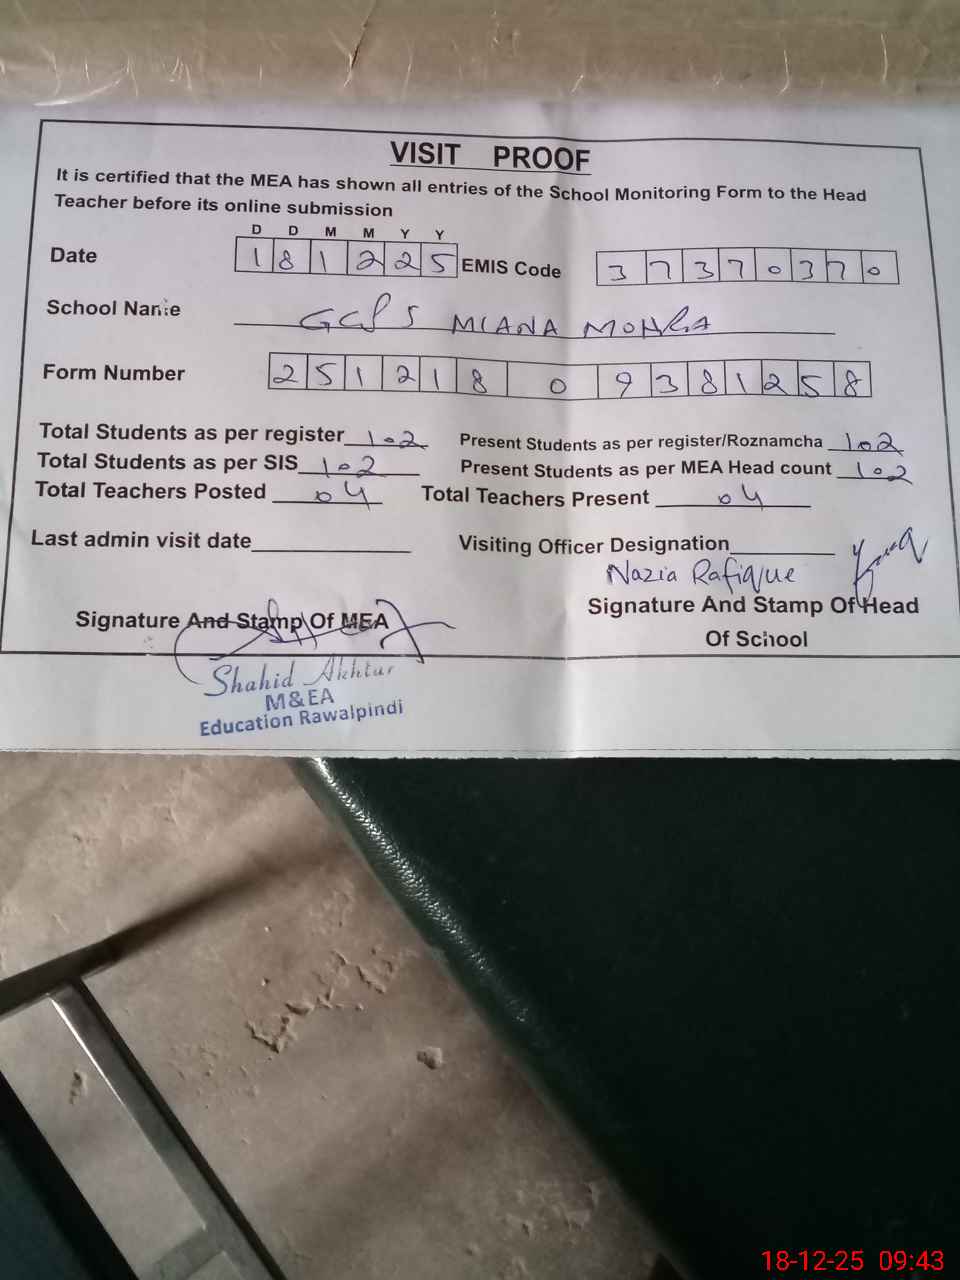 VISIT PROOF
It is certified that the MEA has shown all entries of the School Monitoring Form to the Head
Teacher before its online submission
D D M M Y Y
Date 1 8 1 2 2 5 EMIS Code 3 7 3 7 0 3 7 0
School Name MIANA MOHRA
Form Number 2 5 1 2 1 8 0 9 3 8 1 2 5 8
Total Students as per register 102 Present Students as per register/Roznamcha 102
Total Students as per SIS 102 Present Students as per MEA Head count 102
Total Teachers Posted 04 Total Teachers Present 04
Last admin visit date Visiting Officer Designation
Nazia Rafique
Signature And Stamp Of MEA Signature And Stamp Of Head
Of School
Shahid Akhtar
M&EA
Education Rawalpindi
18-12-25 09:43